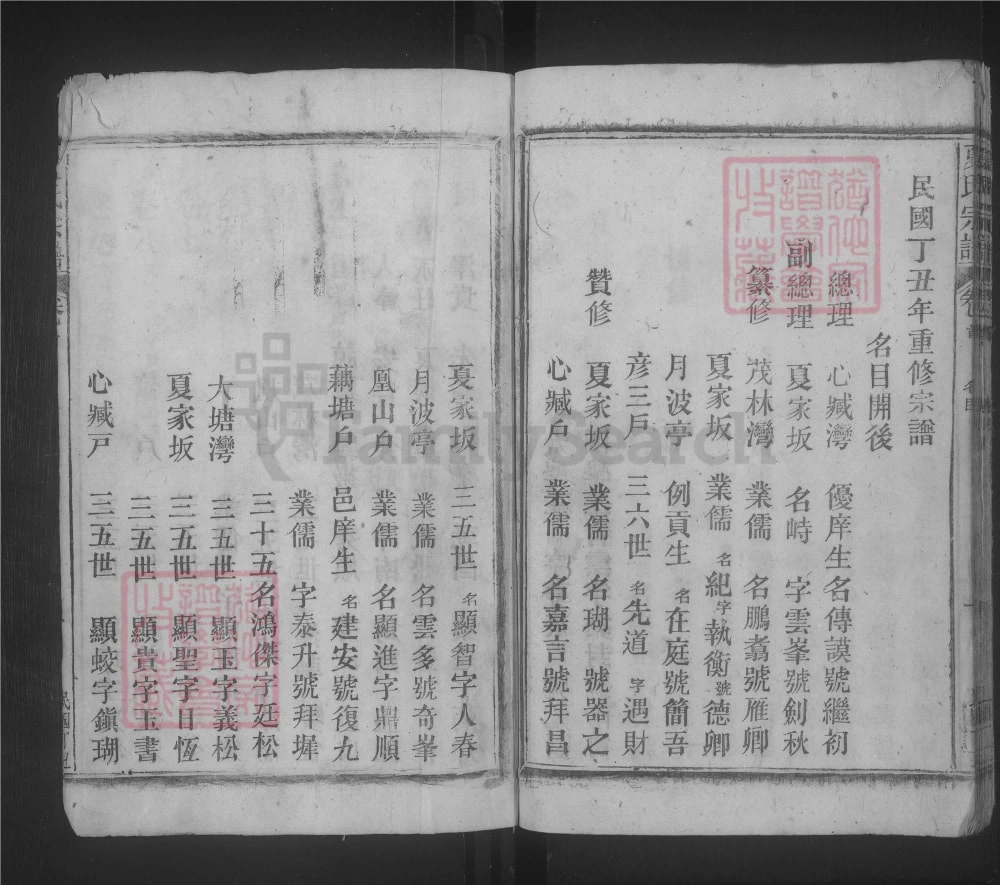 夏氏宗譜 卷首
民國丁丑年重修宗譜
名目開後
總理 心臧灣 優庠生名傳謨號繼初
副總理 夏家坂 名峙 字雲峯號劍秋
纂修 茂林灣 業儒 名鵬翥號雁卿
夏家坂 業儒 名紀字執衡號德卿
月波亭 例貢生 名在庭號簡吾
彦三戶 三六世 名先道 字遇財
贊修 夏家坂 業儒 名瑚號器之
心臧戶 業儒 名嘉言號拜昌
夏家坂 三五世 名顯智字人春
月波亭 業儒 名雲多號奇峯
凰山戶 業儒 名顯進字鼎順
藕塘戶 邑庠生 名建安號復九
業儒 字泰升號拜墀
三十五名鴻傑字廷松
大塘灣 三五世 顯玉字義松
夏家坂 三五世 顯聖字日恆
三五世 顯貴字玉書
心臧戶 三五世 顯蛟字鎭瑚
FamilySearch